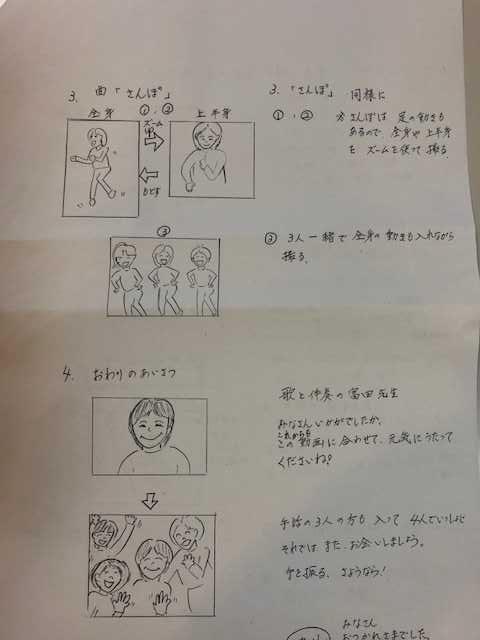 3. 曲「さんぽ」
全身 ①.② 上半身
ズーム
もどす
③
3. 「さんぽ」 同様に
①.② さんぽは 足の動きも
あるので 全身や上半身
を ズームを使って 撮る
③ 3人一緒で 全身の動きも入れながら
撮る。
4. おわりのあいさつ
歌と伴奏の富田先生
みなさんいかがでしたか。
これからも
この動画に合わせて、元気にうたって
くださいね?
手話の3人の方も 入って 4人でいっしょに
それでは また、お会いしましょう。
手を振る、さようなら!
みなさん
おつかれさまでした